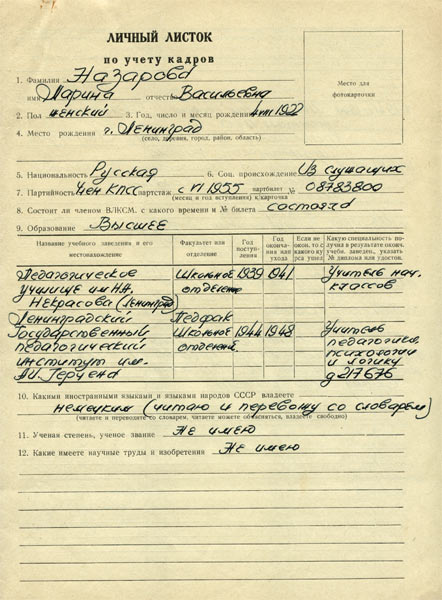 ЛИЧНЫЙ ЛИСТОК
по учету кадров
Место для
фотокарточки
1. Фамилия Назарова
имя Марина отчество Васильевна
2. Пол женский 3. Год, число и месяц рождения 4 VIII 1922
4. Место рождения г. Ленинград
(село, деревня, город, район, область)
5. Национальность Русская 6. Соц. происхождение Из служащих
7. Партийность член КПСС партстаж с VI 1955 партбилет № 08783800
(месяц и год вступления) к/карточка
8. Состоит ли членом ВЛКСМ, с какого времени и № билета состояла
9. Образование Высшее
Название учебного заведения и его местонахождение
Факультет или отделение
Год поступления
Год окончания или ухода
Если не окон. то с какого курса ушел
Какую специальность получил в результате окончан. учебн. заведен., указать № диплома или удостов.
Педагогическое Школьное 1939 1941 Учитель нач.
училище им. Н.А. отделение классов
Некрасова (Ленинград)
Ленинградский Педфак
Государственный Школьное 1944 1948 Учитель
педагогический отделение педагогики,
институт им. психологии и логики
А.И. Герцена 217676
10. Какими иностранными языками и языками народов СССР владеете
немецким (читаю и перевожу со словарем)
(читаете и переводите со словарем, читаете можете объясняться, владеете свободно)
11. Ученая степень, ученое звание Не имею
12. Какие имеете научные труды и изобретения Не имею